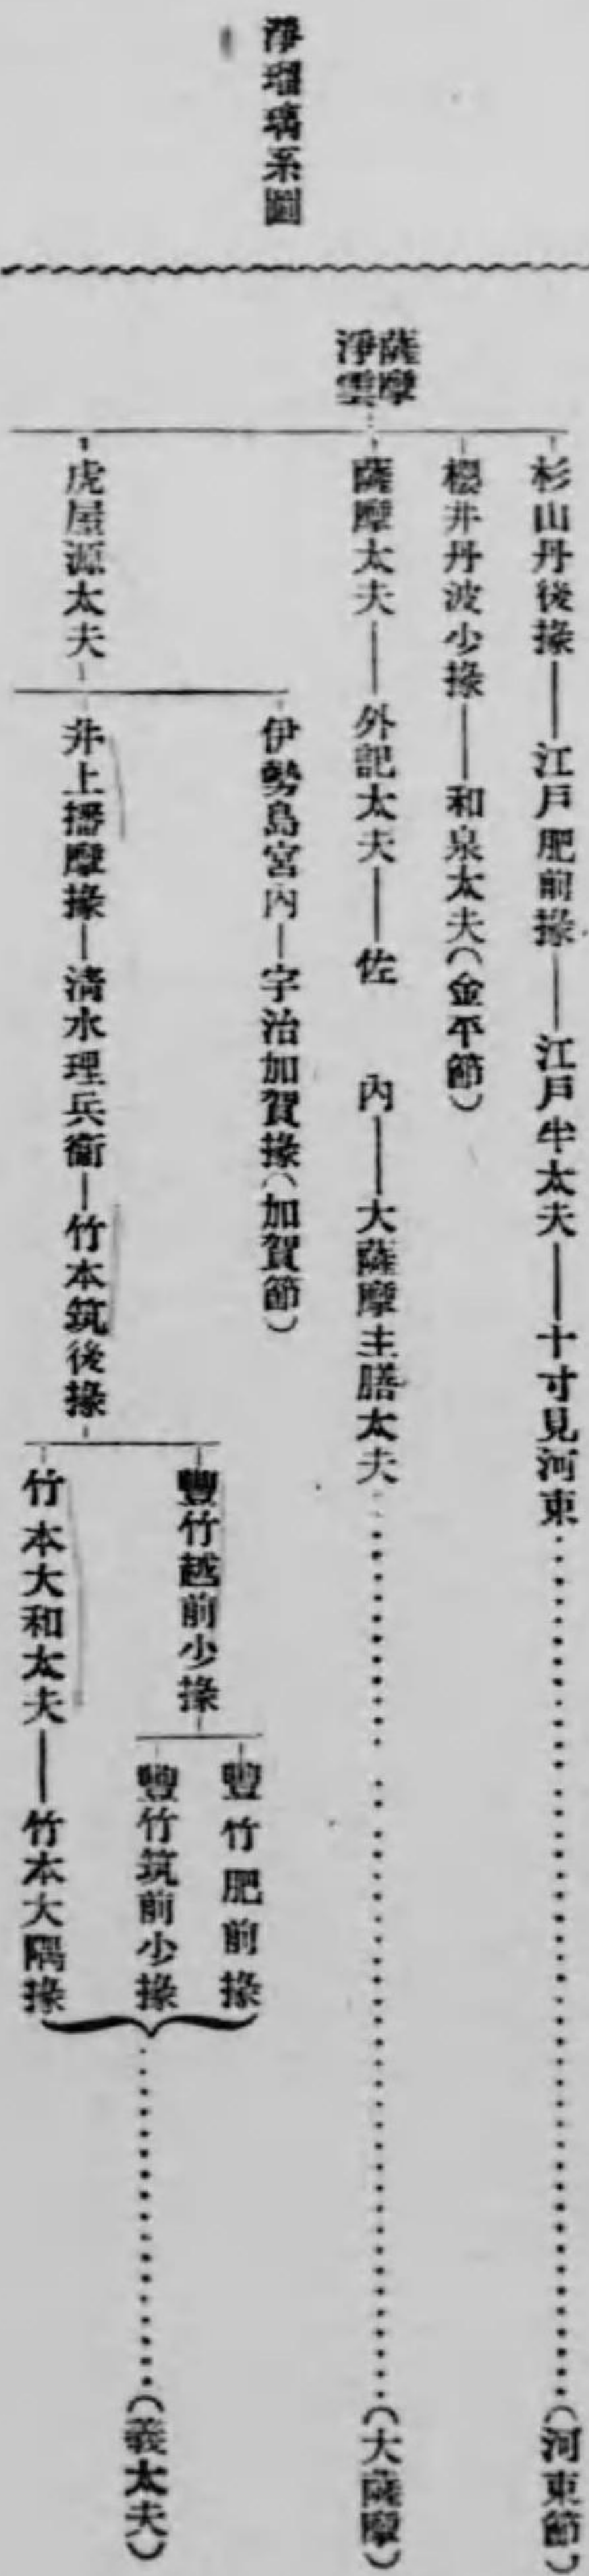 淨瑠璃系圖
薩摩
淨雲
杉山丹後掾――江戸肥前掾――江戸半太夫――十寸見河東……(河東節)
櫻井丹波少掾――和泉太夫(金平節)
薩摩太夫――外記太夫――佐內――大薩摩主膳太夫……(大薩摩)
虎屋源太夫
伊勢島宮內―宇治加賀掾(加賀節)
井上播摩掾―淸水理兵衞―竹本筑後掾
豐竹越前少掾
豐竹肥前掾
豐竹筑前少掾
竹本大和太夫――竹本大隅掾
……(義太夫)